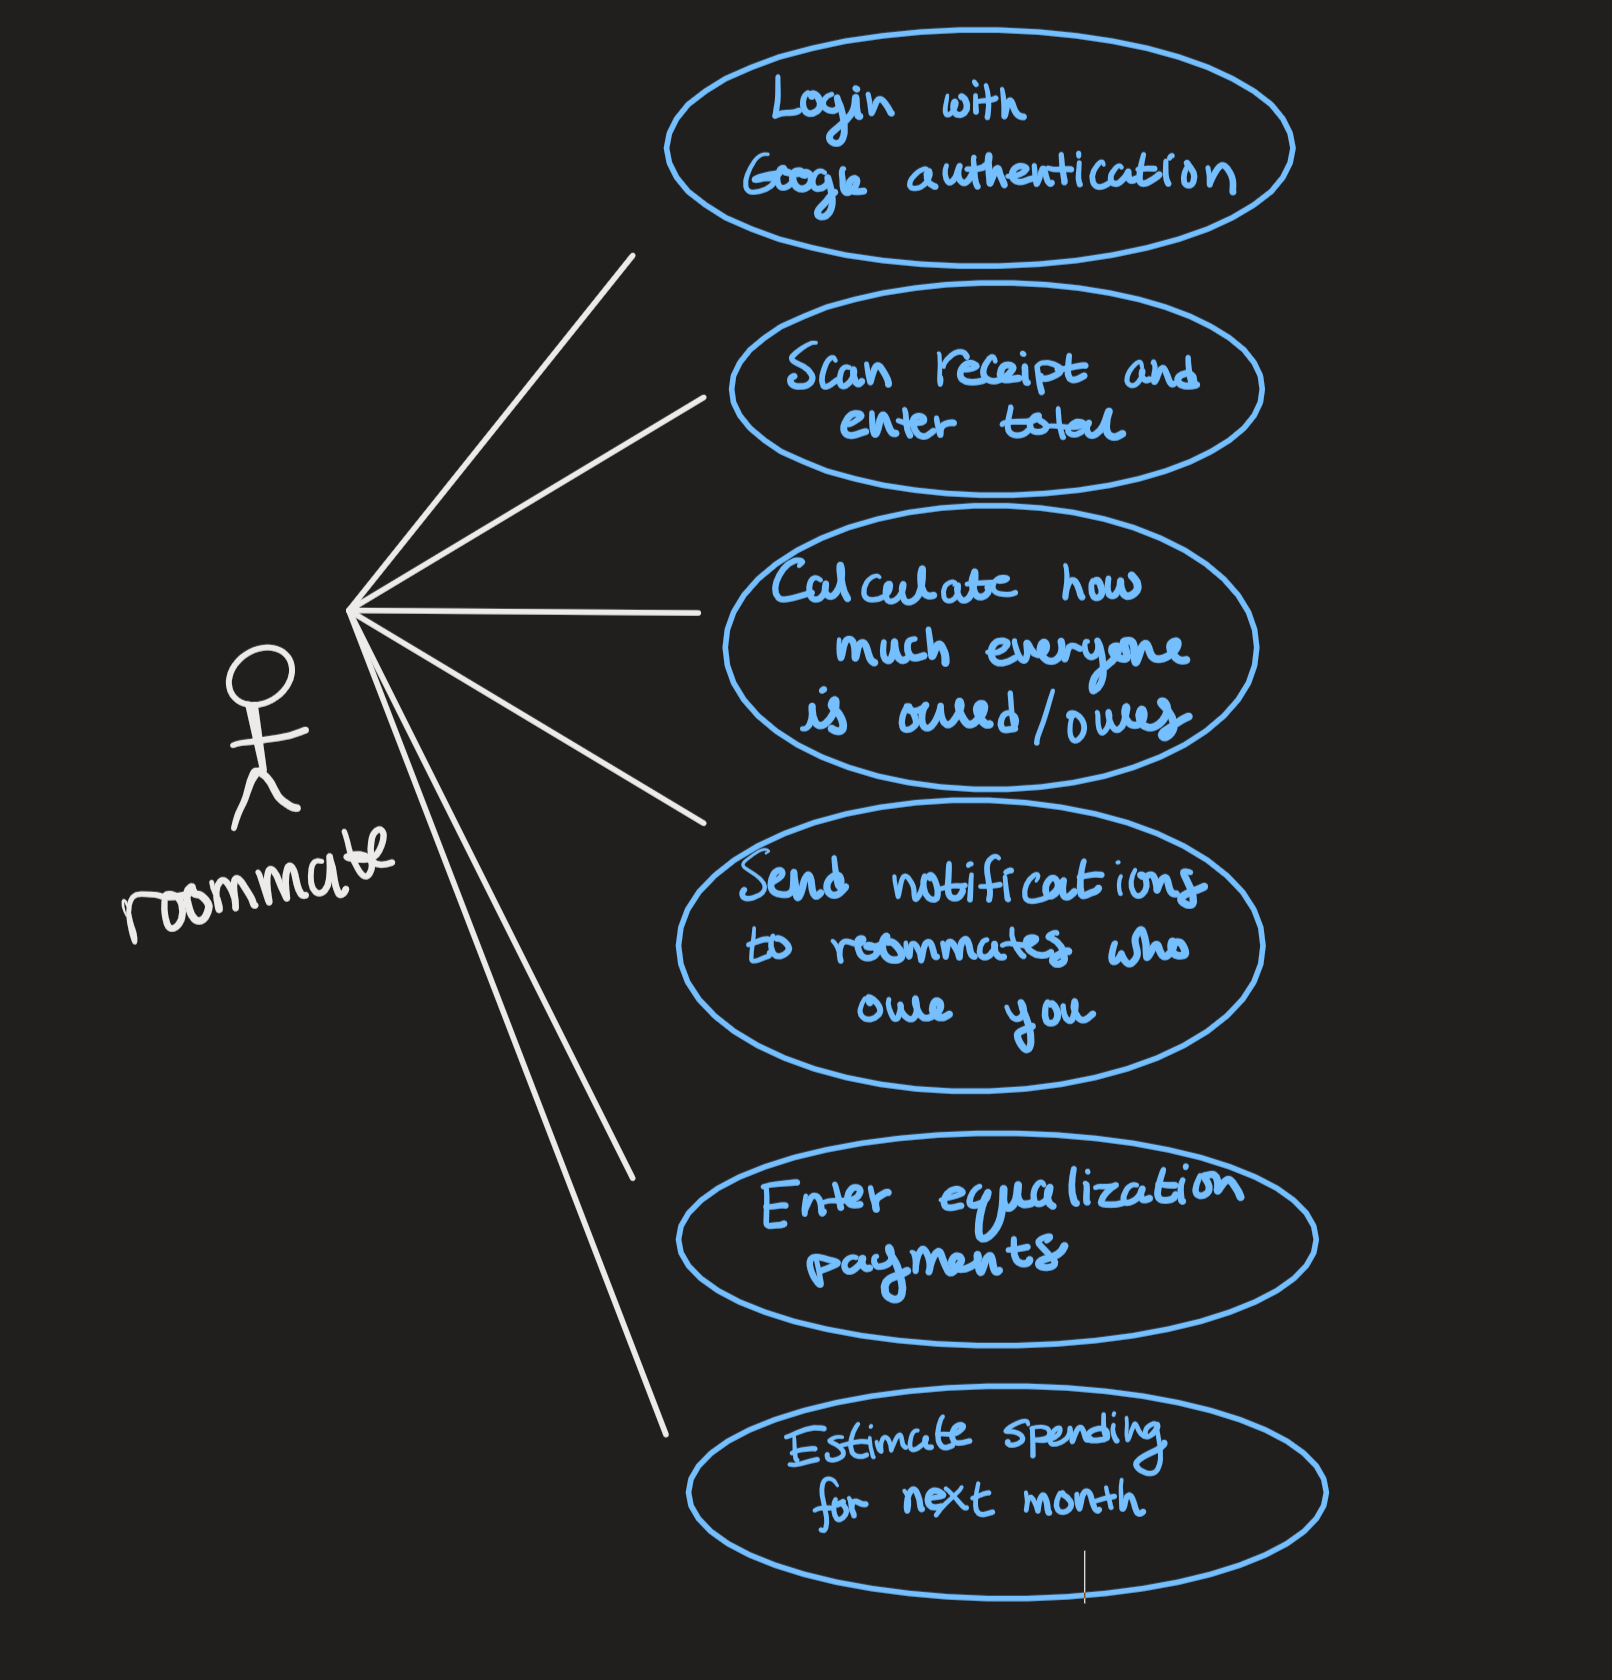 Login with
Google authentication
Scan receipt and
enter total
Calculate how
much everyone
is owed/owes
Send notifications
to roommates who
owe you
roommate
Enter equalization
payments
Estimate spending
for next month